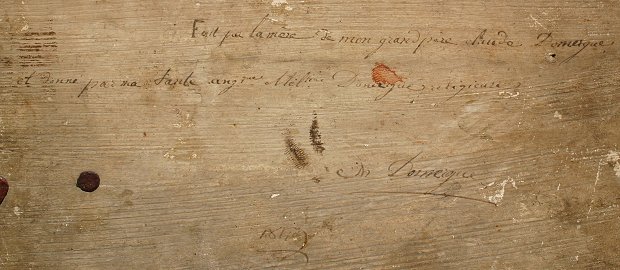 Fait par la mère de mon grand père Claude Domergue
et donné par ma Tante Domergue religieuse
Domergue